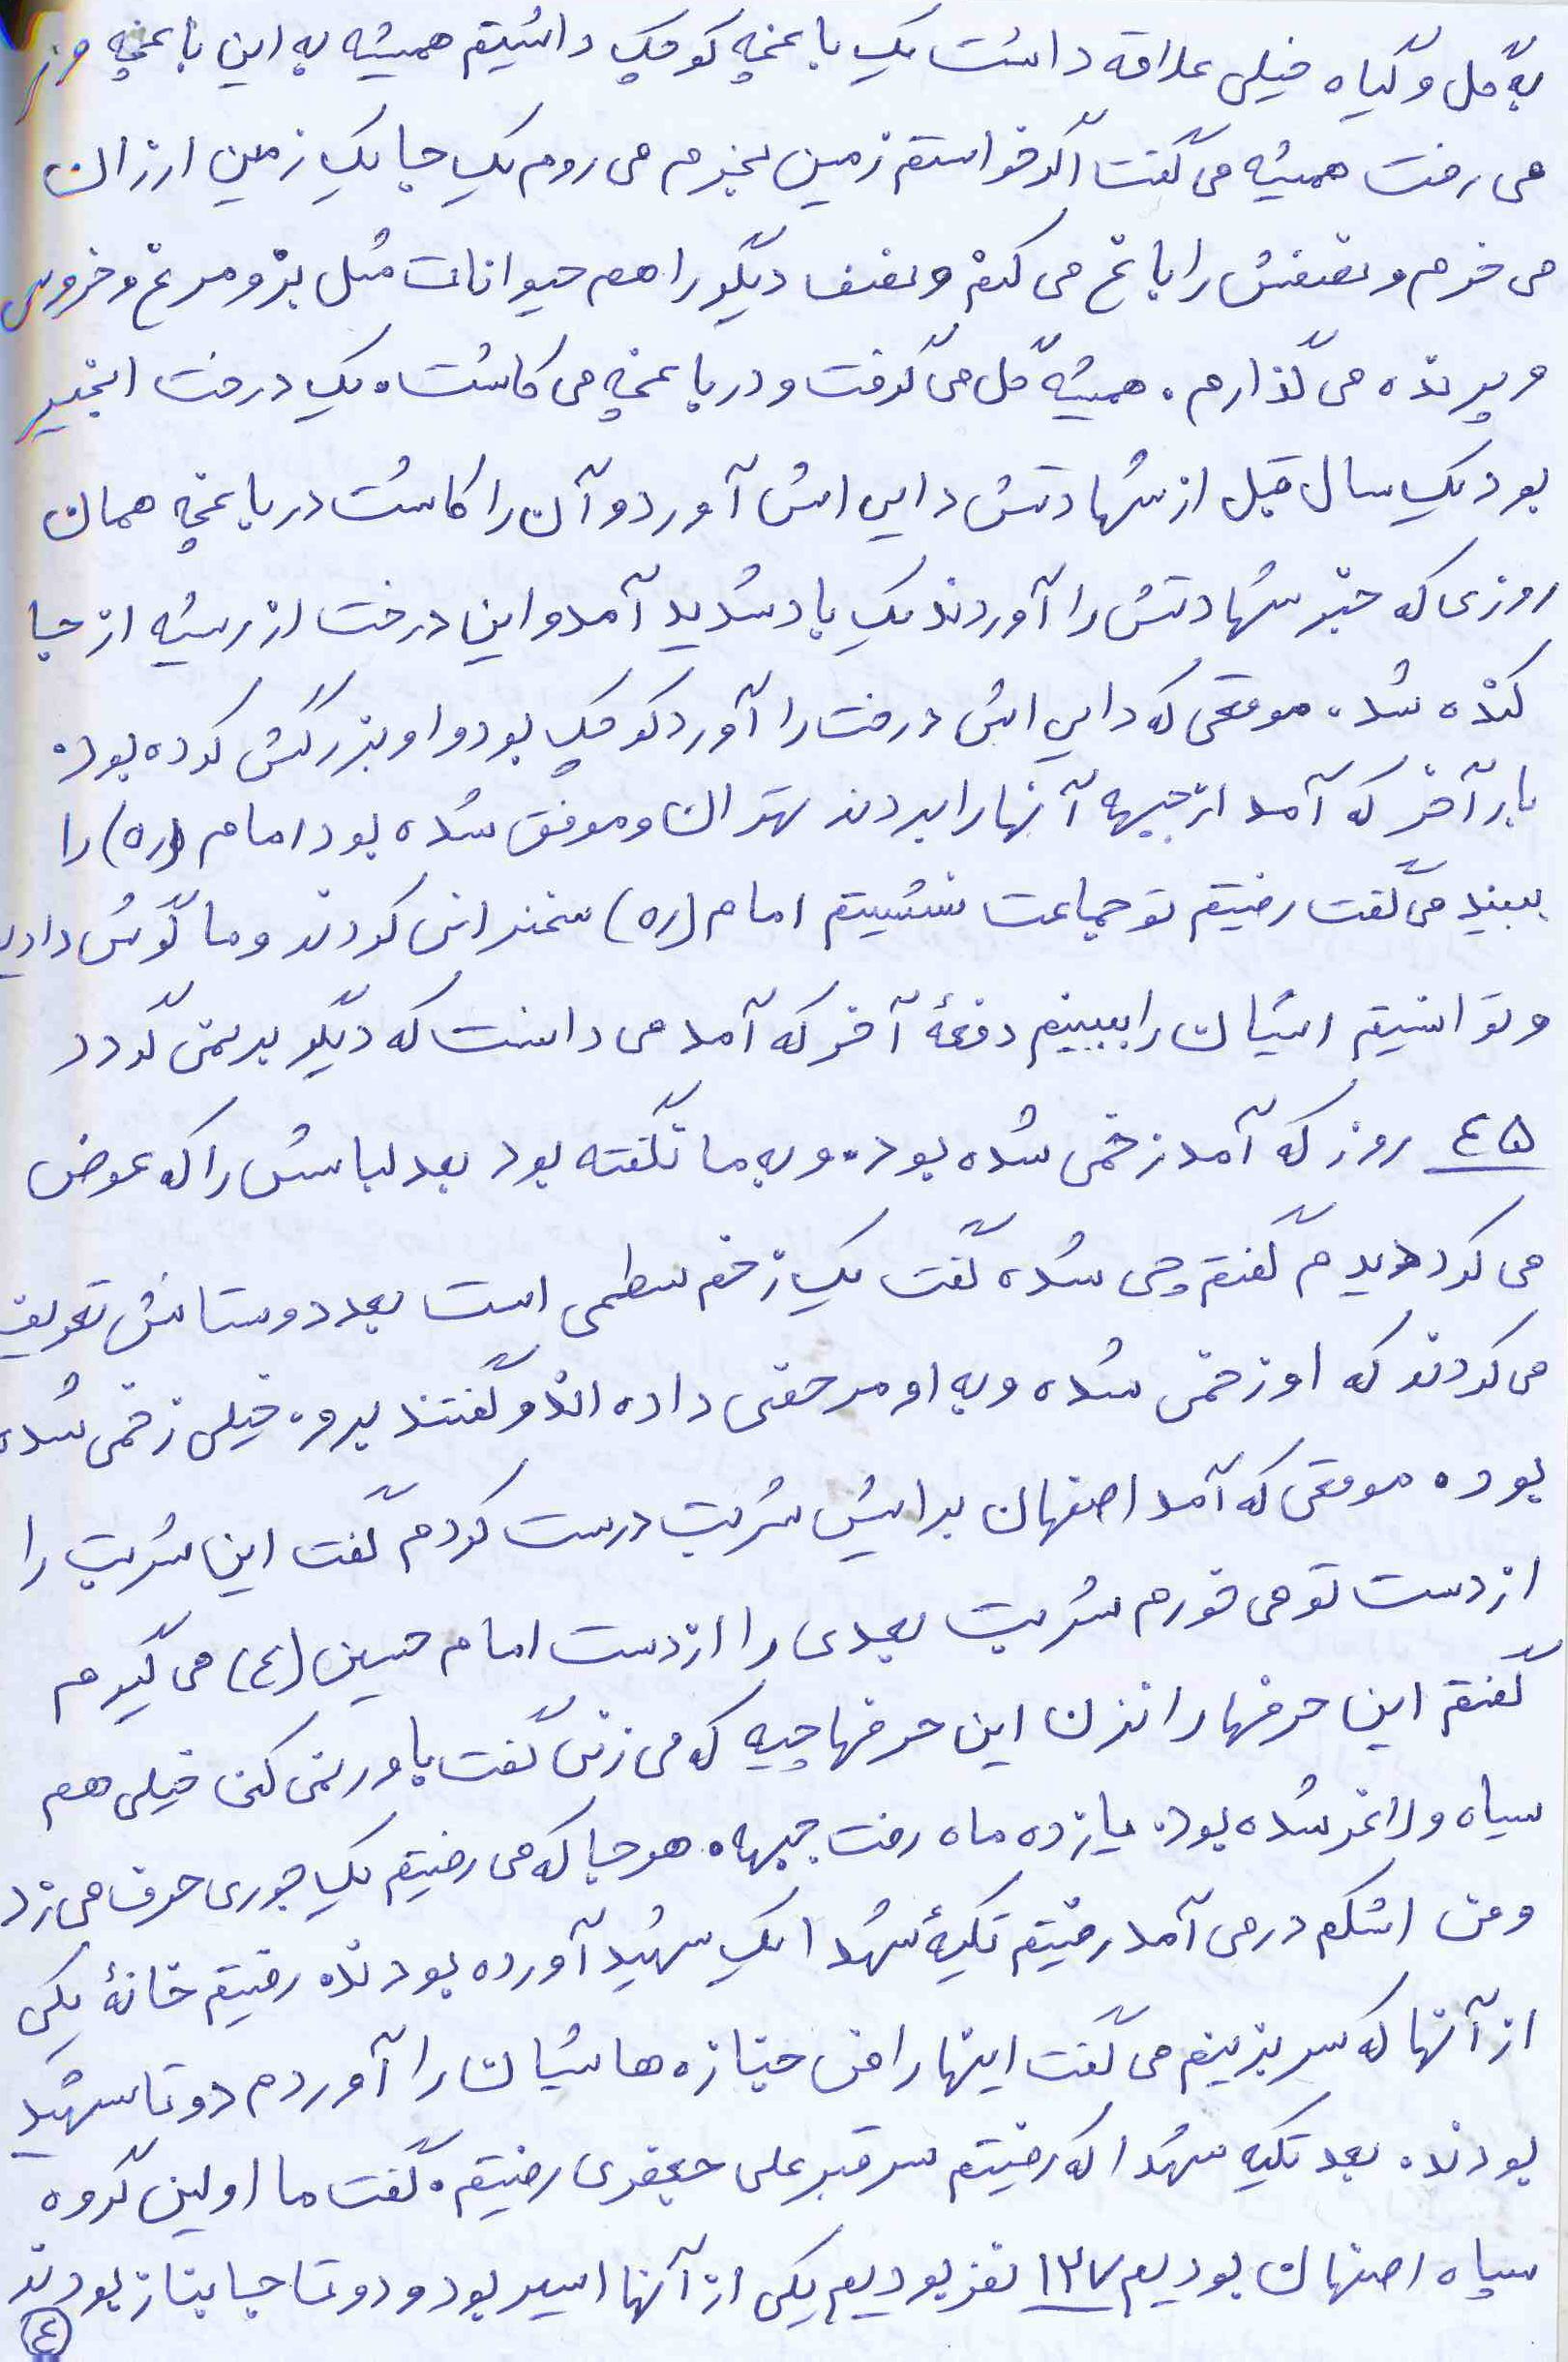 به گل و گیاه خیلی علاقه داشت یک باغچه کوچک داشتیم همیشه به این باغچه ور
می رفت همیشه می گفت اگر خواستم زمین بخرم می روم یک جا یک زمین ارزان
می خرم و نصفش را باغ می کنم و نصف دیگر را هم حیوانات مثل بز و مرغ و خروس
و پرنده می گذارم. همیشه گل می گرفت و در باغچه می کاشت. یک درخت انجیر
بود یک سال قبل از شهادتش دایی اش آورد و آن را کاشت در باغچه همان
روزی که خبر شهادتش را آوردند یک باد شدید آمد و این درخت از ریشه از جا
کنده شد. موقعی که دایی اش درخت را آورد کوچک بود و او بزرگش کرده بود.
بار آخر که آمد از جبهه آنها را بردند تهران و موفق شده بود امام (ره) را
ببیند می گفت رفتیم تو جماعت نشستیم امام (ره) سخنرانی کردند و ما گوش دادیم
و توانستیم ایشان را ببینیم دفعهٔ آخر که آمد می دانست که دیگر برنمی گردد
۴۵ روز که آمد زخمی شده بود. و به ما نگفته بود بعد لباسش را که عوض
می کرد دیدم گفتم چی شده گفت یک زخم سطحی است بعد دوستانش تعریف
می کردند که او زخمی شده و به او مرخصی داده اند و گفتند برو. خیلی زخمی شده
بود. موقعی که آمد اصفهان برایش شربت درست کردم گفت این شربت را
از دست تو می خورم شربت بعدی را از دست امام حسین (ع) می گیرم
گفتم این حرفها را نزن این حرفها چیه که می زنی گفت باور نمی کنی خیلی هم
سیاه و لاغر شده بود. یازده ماه رفت جبهه. هر جا که می رفتیم یک جوری حرف می زد
و من اشکم در می آمد رفتیم تکیهٔ شهدا یک شهید آورده بودند. رفتیم خانهٔ یکی
از آنها که سر بزنیم می گفت اینها را من جنازه هاشان را آوردم دو تا شهید
بودند. بعد تکیه شهدا که رفتیم سر قبر علی جعفری رفتیم. گفت ما اولین گروه
سپاه اصفهان بودیم ۱۳۷ نفر بودیم یکی از آنها اسیر بود و دو تا جانباز بودند
۴